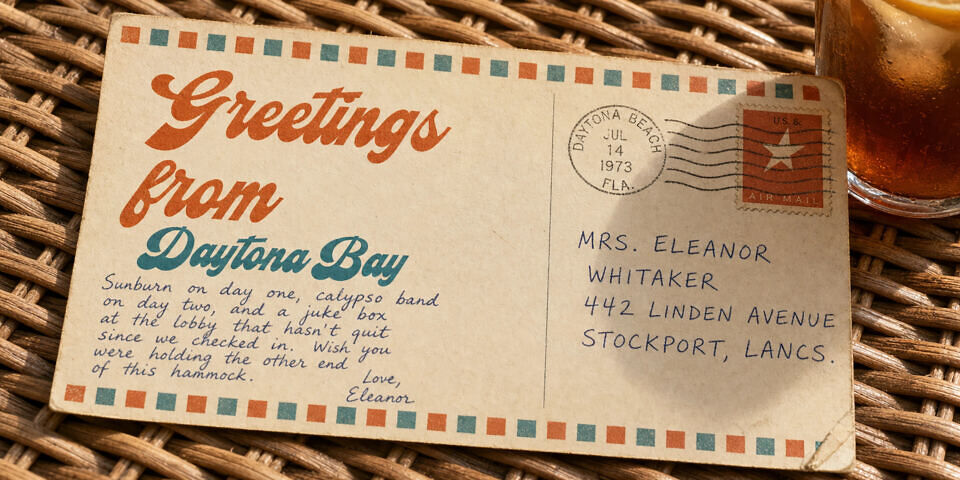 Greetings
from
Daytona Bay
Sunburn on day one, calypso band
on day two, and a juke box
at the lobby that hasn't quit
since we checked in. Wish you
were holding the other end
of this hammock.
Love,
Eleanor
DAYTONA BEACH
JUL
14
1973
FLA.
U.S.
AIR MAIL
MRS. ELEANOR
WHITAKER
442 LINDEN AVENUE
STOCKPORT, LANCS.